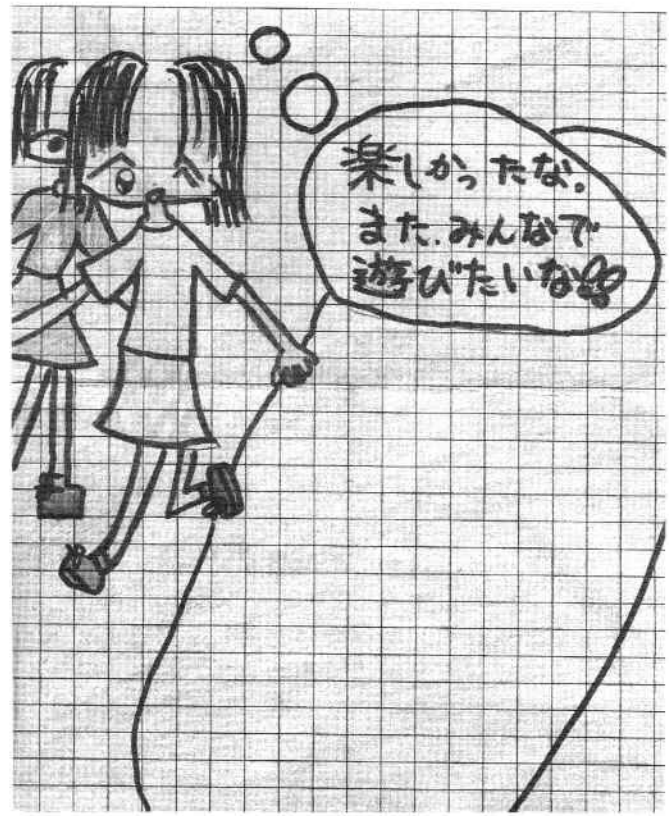 楽しかったな。
また、みんなで
遊びたいな!!